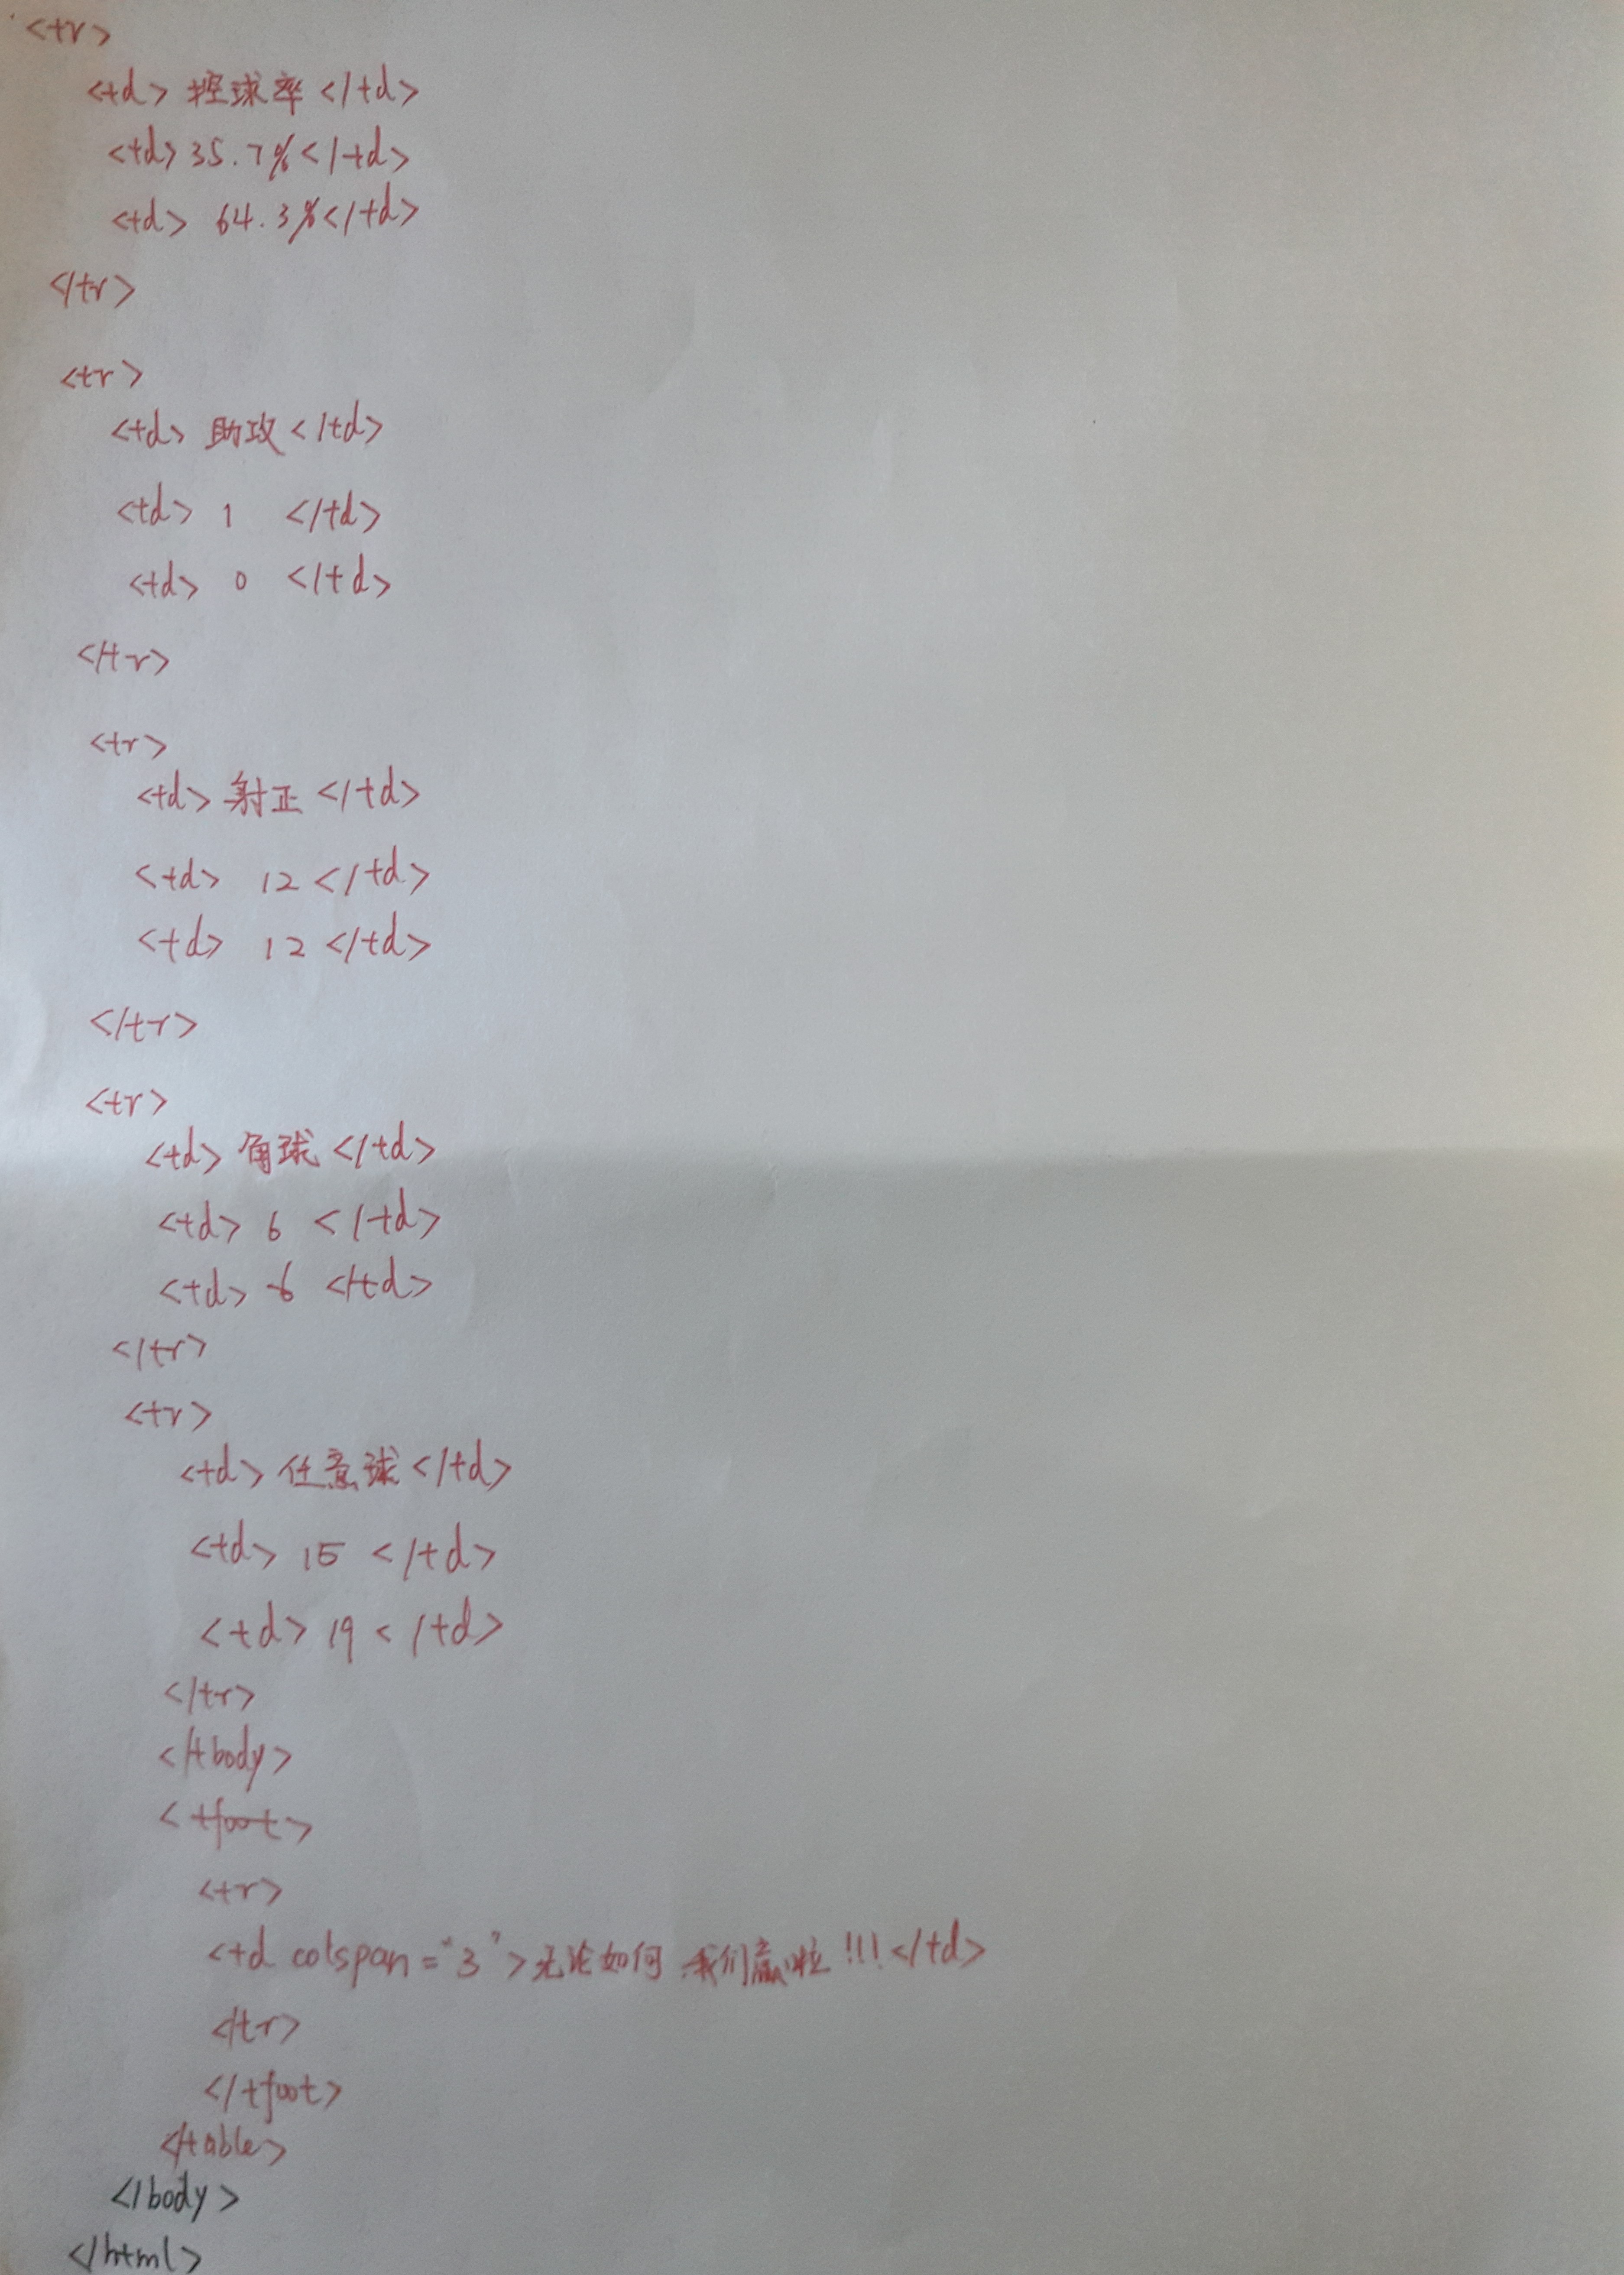 <tr>
<td> 控球率 </td>
<td> 35.7% </td>
<td> 64.3% </td>
</tr>
<tr>
<td> 助攻 </td>
<td> 1 </td>
<td> 0 </td>
</tr>
<tr>
<td> 射正 </td>
<td> 12 </td>
<td> 12 </td>
</tr>
<tr>
<td> 角球 </td>
<td> 6 </td>
<td> 6 </td>
</tr>
<tr>
<td> 任意球 </td>
<td> 15 </td>
<td> 19 </td>
</tr>
</tbody>
<tfoot>
<tr>
<td colspan="3">无论如何 我们赢啦!!!</td>
</tr>
</tfoot>
</table>
</body>
</html>